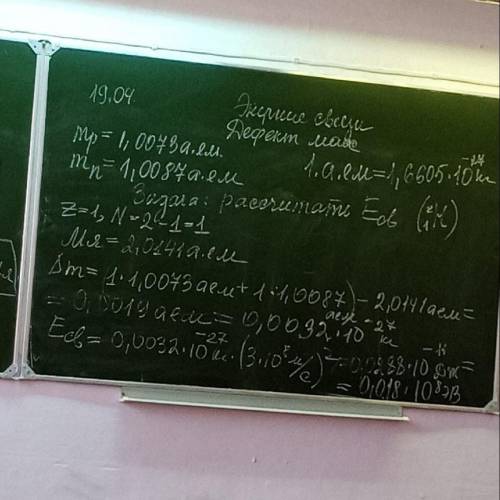 19.04.
Энергия связи
Дефект масс
mp = 1,0073 а.ем.
mn = 1,0087 а.ем
1.а.ем = 1,6605·10⁻²⁷ кг
Задача: рассчитать Eсв (²₁H)
Z=1, N=2-1=1
Mя = 2,0141 а.ем
Δm = (1·1,0073 аем + 1·1,0087) - 2,0141 аем =
= 0,0019 аем = 0,0032·10⁻²⁷
Eсв = 0,0032·10⁻²⁷ кг·(3·10⁸ м/с)² = 0,0288·10⁻¹¹ Дж =
= 0,018·10⁸ эВ